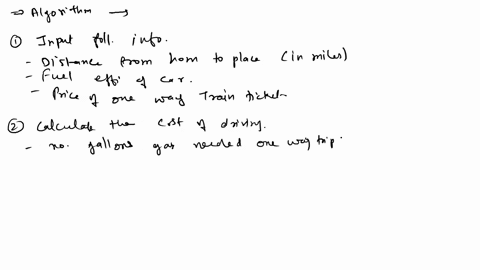 ⇒ Algorithm →
① Input foll. info.
- Distance from hom to place (in miles)
- Fuel effi of car.
- Price of one way Train ticket
② Calculate the cost of driving.
- no. gallons gas needed one way trip.